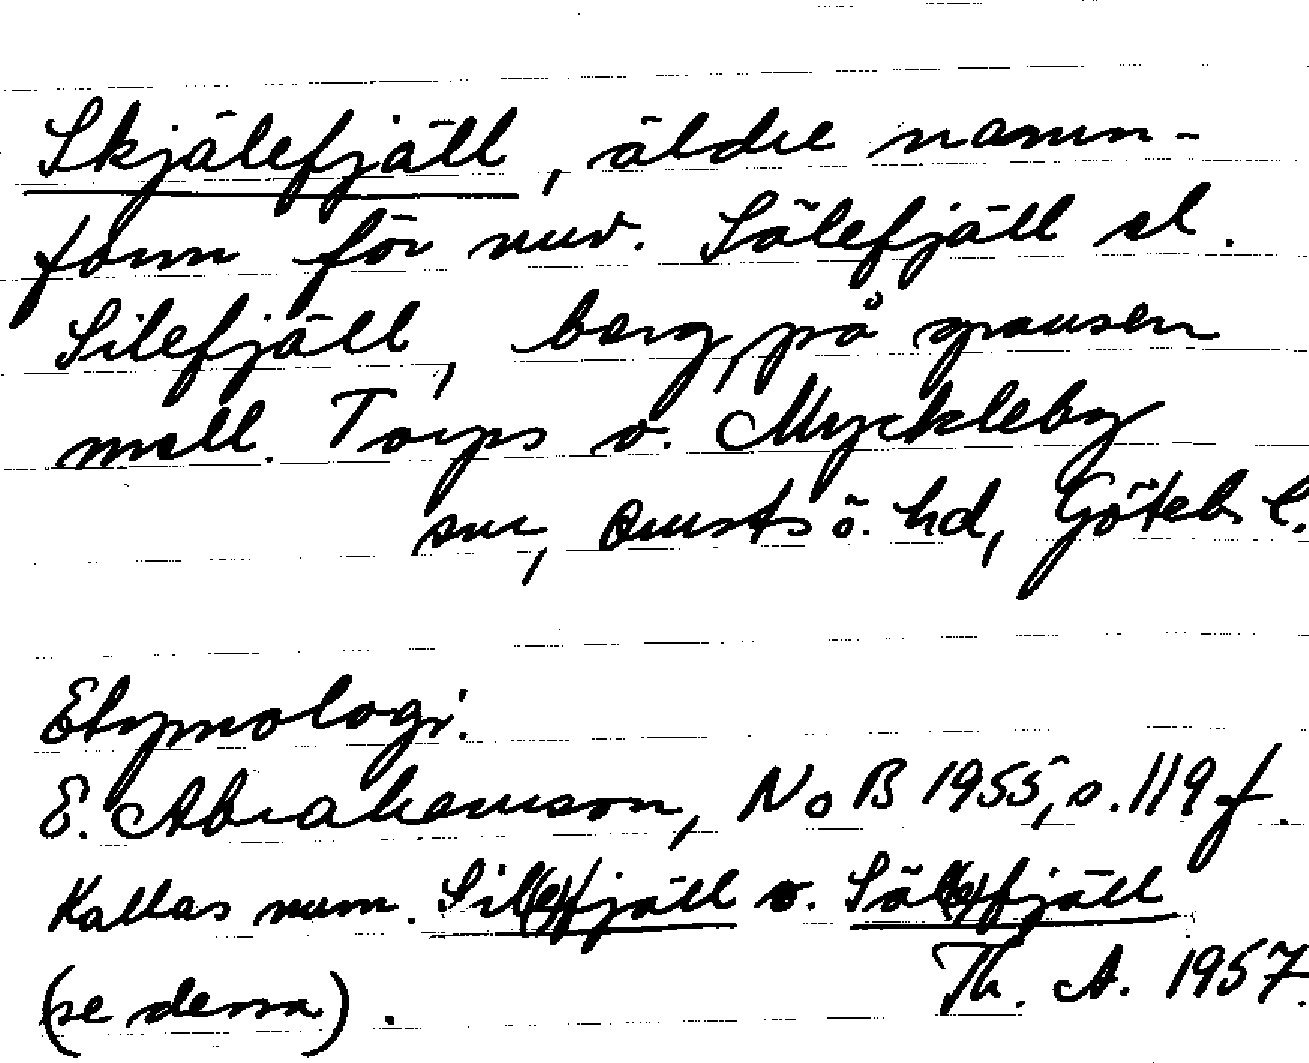 Skjälefjäll, äldre namn-
form för nuv. Sälefjäll el.
Silefjäll, berg, på gränsen
mell. Torps o. Myckleby
snr, Orusts ö. hd, Göteb. l.
Etymologi.
E. Abrahamson, NoB 1955, s. 119 f.
Kallas num. Sil(e)fjäll o. Säl(e)fjäll
(se dessa). Th. A. 1957.